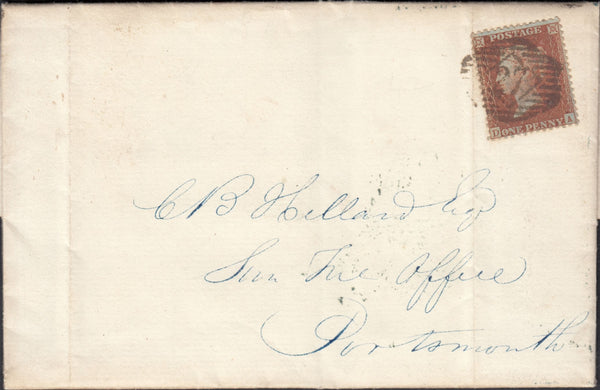 POSTAGE
D ONE PENNY A
C B Hellard Esq
Sun Fire Office
Portsmouth